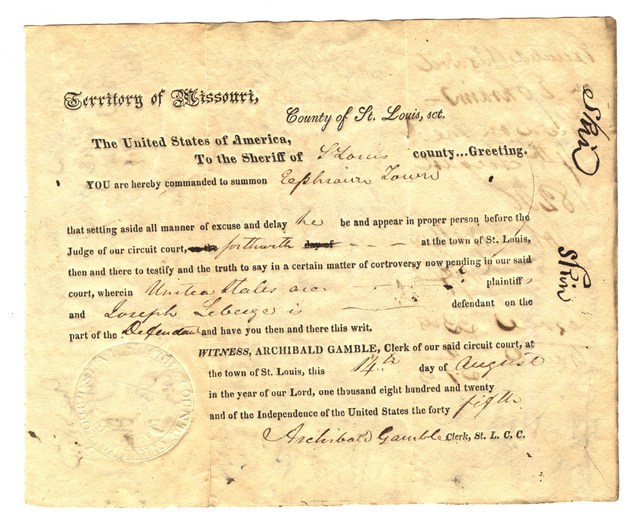 Territory of Missouri,
County of St. Louis, sct.
The United States of America,
To the Sheriff of St Louis county...Greeting.
YOU are hereby commanded to summon Eephraim Town
that setting aside all manner of excuse and delay he be and appear in proper person before the
Judge of our circuit court, on the forthwith day of - - - at the town of St. Louis,
then and there to testify and the truth to say in a certain matter of controversy now pending in our said
court, wherein United States are plaintiffs
and Joseph Lebuge is defendant on the
part of the Defendant and have you then and there this writ.
WITNESS, ARCHIBALD GAMBLE, Clerk of our said circuit court, at
the town of St. Louis, this 14th day of August
in the year of our Lord, one thousand eight hundred and twenty
and of the Independence of the United States the forty fifth
Archibald Gamble Clerk, St. L. C. C.